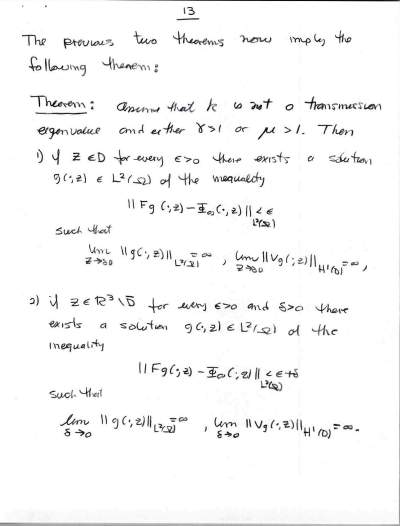 13
The previous two theorems now imply the
following theorem:
Theorem: Assume that k is not a transmission
eigenvalue and either γ>1 or μ>1. Then
1) if z ∈ D for every ε>0 there exists a solution
g(·,z) ∈ L²(Ω) of the inequality
‖Fg(·,z) − Φ∞(·,z)‖_{L²(Ω)} < ε
such that
lim_{z→∂D} ‖g(·,z)‖_{L²(Ω)} = ∞, lim_{z→∂D} ‖Vg(·,z)‖_{H¹(D)} = ∞,
2) if z ∈ R³\D̄ for every ε>0 and δ>0 there
exists a solution g(·,z) ∈ L²(Ω) of the
inequality
‖Fg(·,z) − Φ∞(·,z)‖_{L²(Ω)} < ε+δ
such that
lim_{δ→0} ‖g(·,z)‖_{L²(Ω)} = ∞, lim_{δ→0} ‖Vg(·,z)‖_{H¹(D)} = ∞.